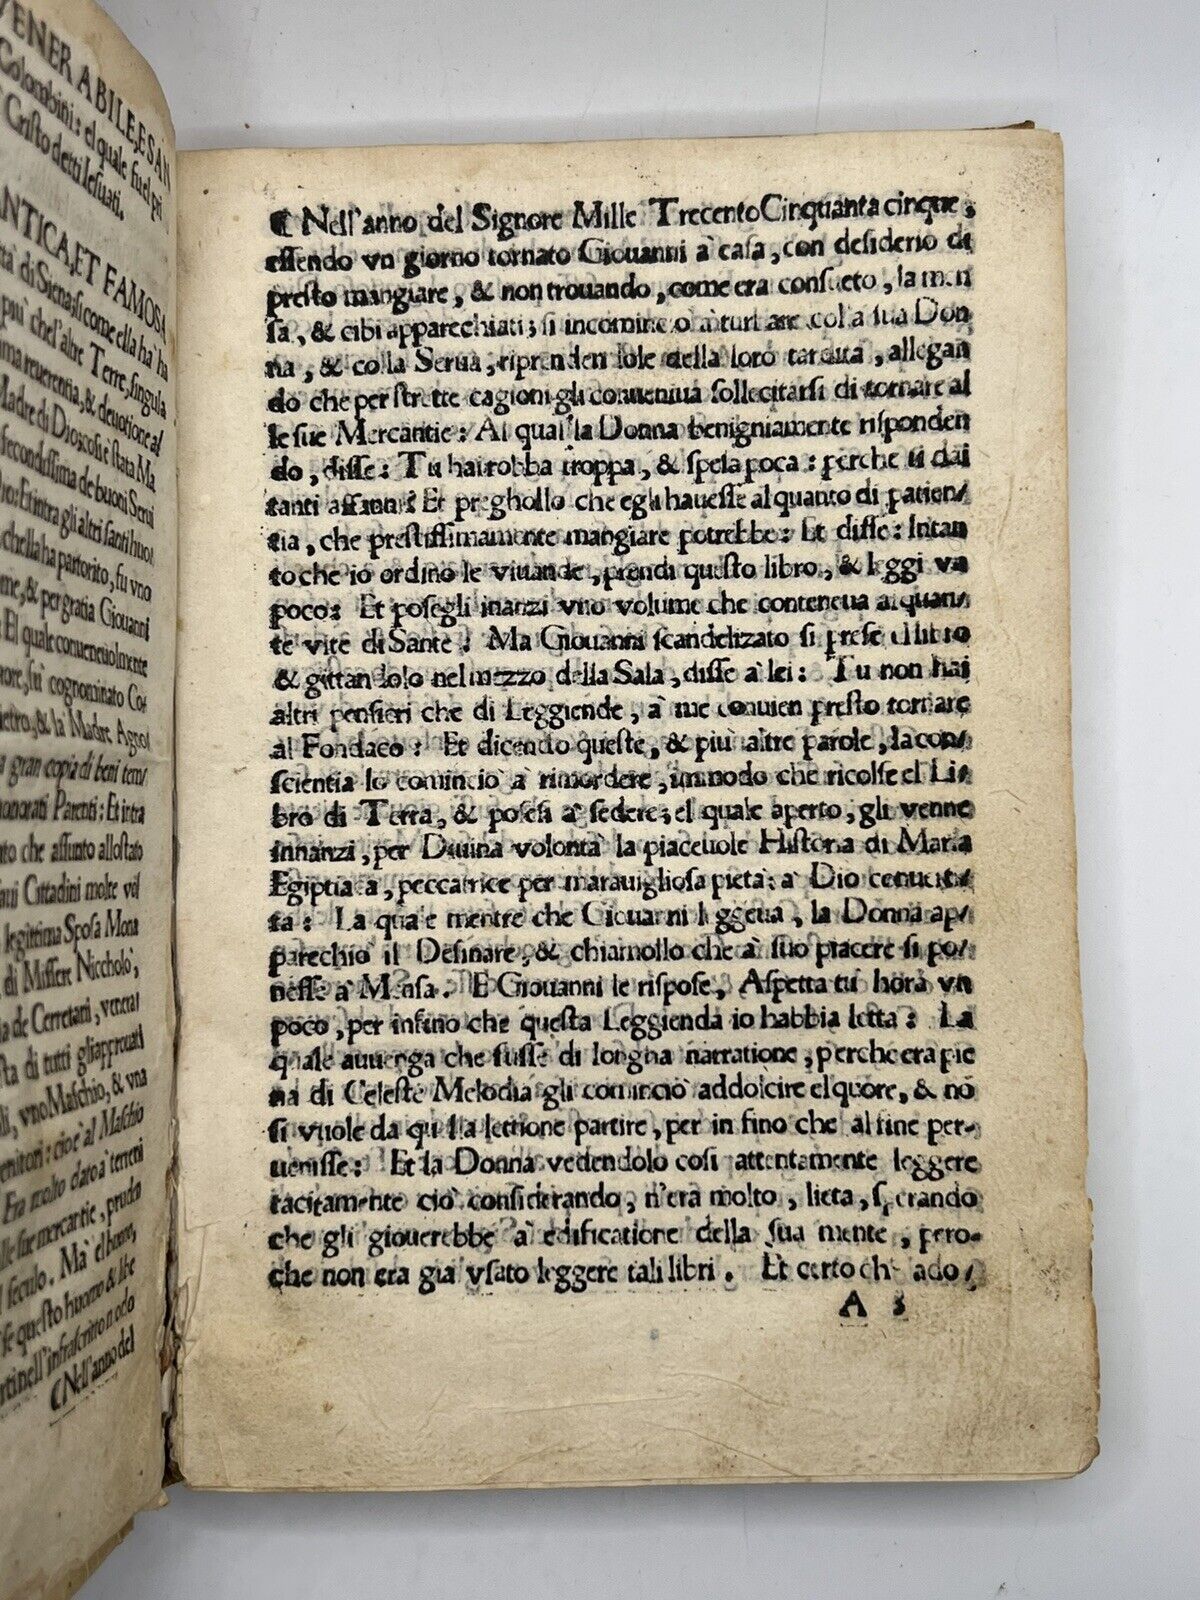 VENERABILE, E SAN
Colombini: el quale fu el pri
Cristo detti Iesuati.
ANTICA, ET FAMOSA
tà di Siena si come ella ha' ha
più chel'altre Terre, singula
ma reuerentia, & deuotione al
Madre di Dio: cosi è stata Ma
fecondissima de buoni Serui
Et intra gli altri santi huo/
chella ha partorito, fu vno
me, & per gratia Giouanni
El quale conueneuolmente
ore, fu cognominato Co/
ietro, & la Madre Agno/
a gran copia di beni tem/
honorati Parenti: Et intra
nto che assunto allo stato
aui Cittadini molte vol
legittima Sposa Mona
di Missere Niccholò,
ia de Cerretani, venera/
sta di tutti gli approuati
li, vno Maschio, & vna
enitori: cioè al Maschio
Era molto dato à terreni
lle sue mercatie, pruden
l seculo. Mà el buon,
se questo huomo & libe
rtinell'infrascritto modo
¶ Nell'anno del
¶ Nell'anno del Signore Mille Trecento Cinquanta cinque,
essendo vn giorno tornato Giouanni à casa, con desiderio di
presto mangiare, & non trouando, come era consueto, la men
sa, & cibi apparechiati; si incominciò à turbare colla sua Don
na, & colla Serua, riprendendole della loro tardita, allegan
do che per strette cagioni gli conueniua sollecitarsi di tornare al
le sue Mercantie: Al qual la Donna benigniamente risponden
do, disse: Tu hai robba troppa, & spesa poca: perche ti dai
tanti affanni? Et preghollo che egli hauesse alquanto di patien/
tia, che prestissimamente mangiare potrebbe: Et disse: Intan
to che io ordino le viuande, prendi questo libro, & leggi vn
poco: Et posegli inanzi vno volume che conteneua alquan/
te vite di Sante: Ma Giouanni scandelizato si prese el libro
& gittandolo nel mezzo della Sala, disse à lei: Tu non hai
altri pensieri che di Leggiende, à me conuien presto tornare
al Fondaco: Et dicendo queste, & più altre parole, la con/
scientia lo cominciò à rimordere, immodo che ricolse el Li/
bro di Terra, & posesi à sedere; el quale aperto, gli venne
innanzi, per Diuina volontà la piaceuole Historia di Maria
Egiptiaca, peccatrice per marauigliosa pietà: à Dio conuerti/
ta: La quale mentre che Giouanni leggeua, la Donna ap/
parechiò il Desinare, & chiamollo che à suo piacere si po/
nesse à Mensa. E Giouanni le rispose, Aspetta tu hora vn
poco, per infino che questa Leggienda io habbia letta: La
quale auuenga che fusse di longha narratione, perche era pie
na di Celeste Melodia gli cominciò addolcire el quore, & nō
si vuole da quella lettione partire, per in fino che al fine per-
uenisse: Et la Donna vedendolo cosi attentamente leggere
tacitamente ciò considerando, n'era molto, lieta, sperando
che gli giouerebbe à edificatione della sua mente, pero-
che non era già vsato leggere tali libri. Et certo che ado/
A 3